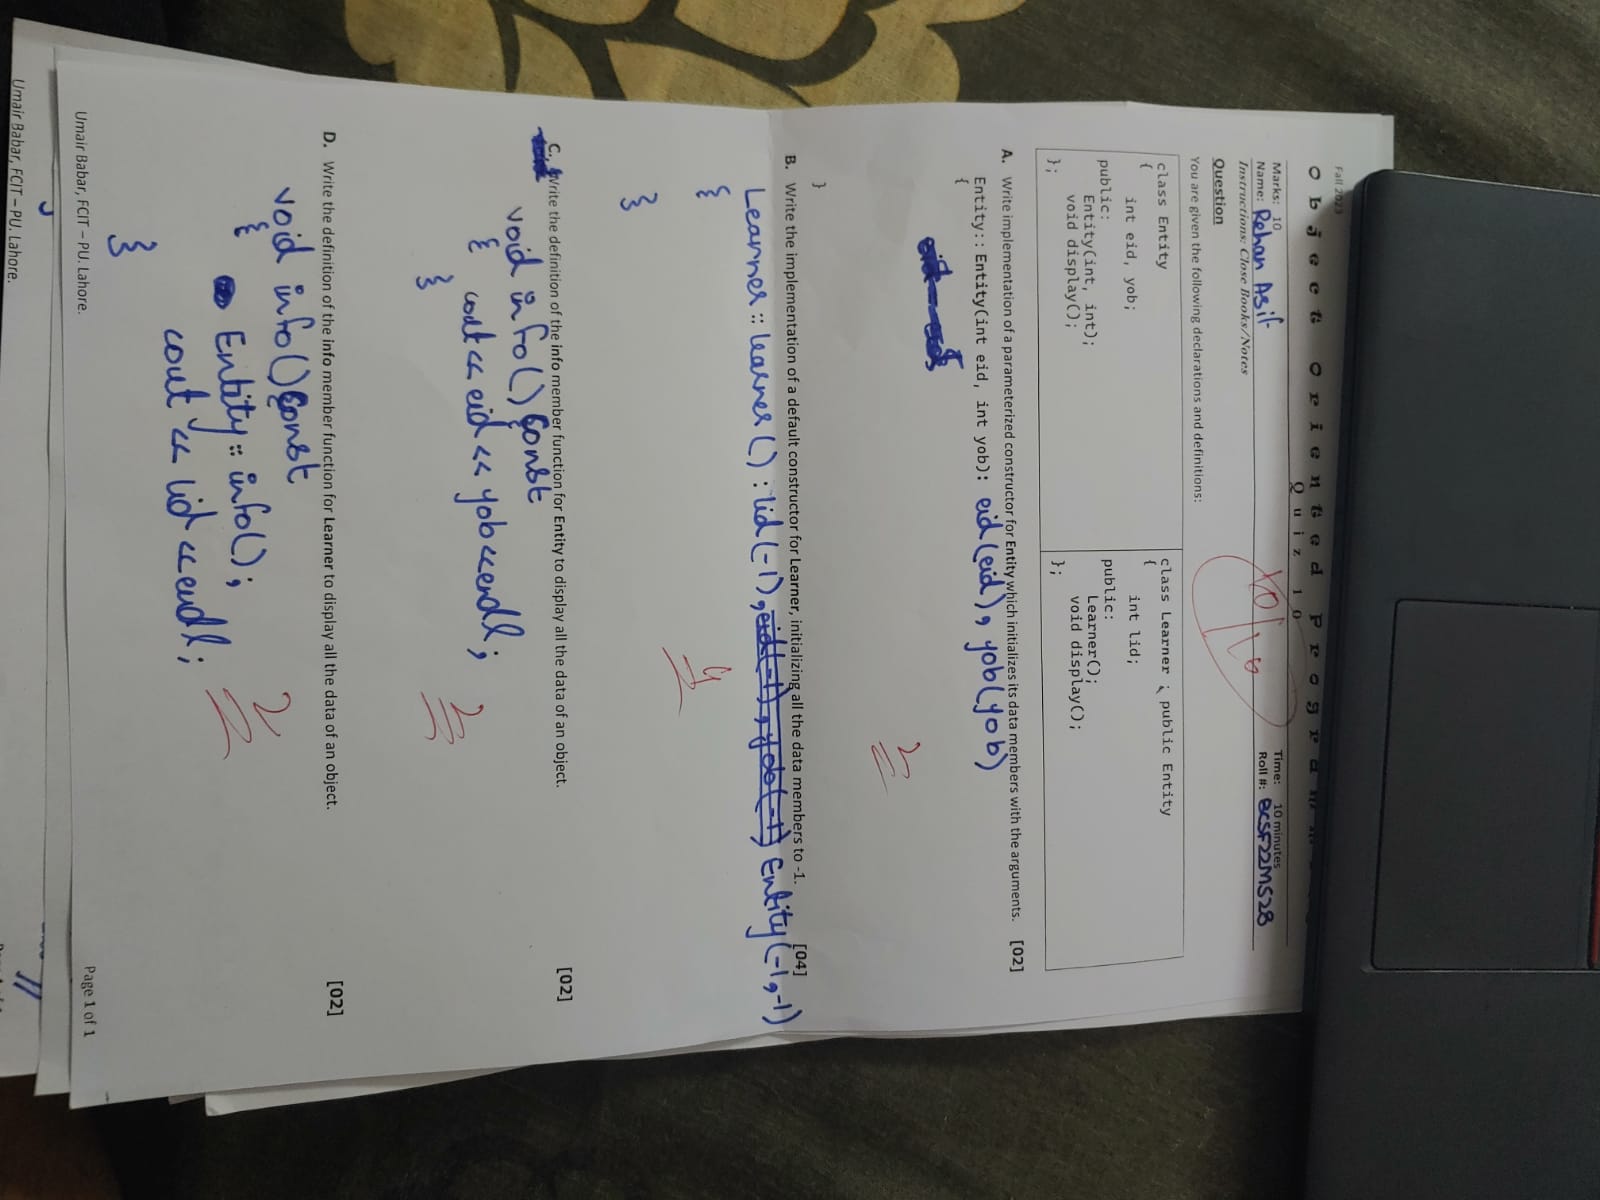 Fall 2023
Object Oriented Program
Quiz 10
Marks: 10
Time: 10 minutes
Name: Rehan Asif
Roll #: BCSF22M528
Instructions: Close Books/Notes
10/10
Question
You are given the following declarations and definitions:
class Entity
{
int eid, yob;
public:
Entity(int, int);
void display();
};
class Learner : public Entity
{
int lid;
public:
Learner();
void display();
};
A. Write implementation of a parameterized constructor for Entity which initializes its data members with the arguments. [02]
Entity:: Entity(int eid, int yob): eid(eid), yob(yob)
{
2
}
B. Write the implementation of a default constructor for Learner, initializing all the data members to -1. [04]
Learner :: Learner () : lid(-1), eid(-1), yob(-1) Entity(-1,-1)
{
4
}
C. Write the definition of the info member function for Entity to display all the data of an object. [02]
void info() const
{
cout << eid << yob << endl;
}
2
D. Write the definition of the info member function for Learner to display all the data of an object. [02]
void info() const
{
Entity :: info();
2
cout << lid << endl;
}
Umair Babar, FCIT – PU. Lahore.
Page 1 of 1
Umair Babar, FCIT – PU. Lahore.